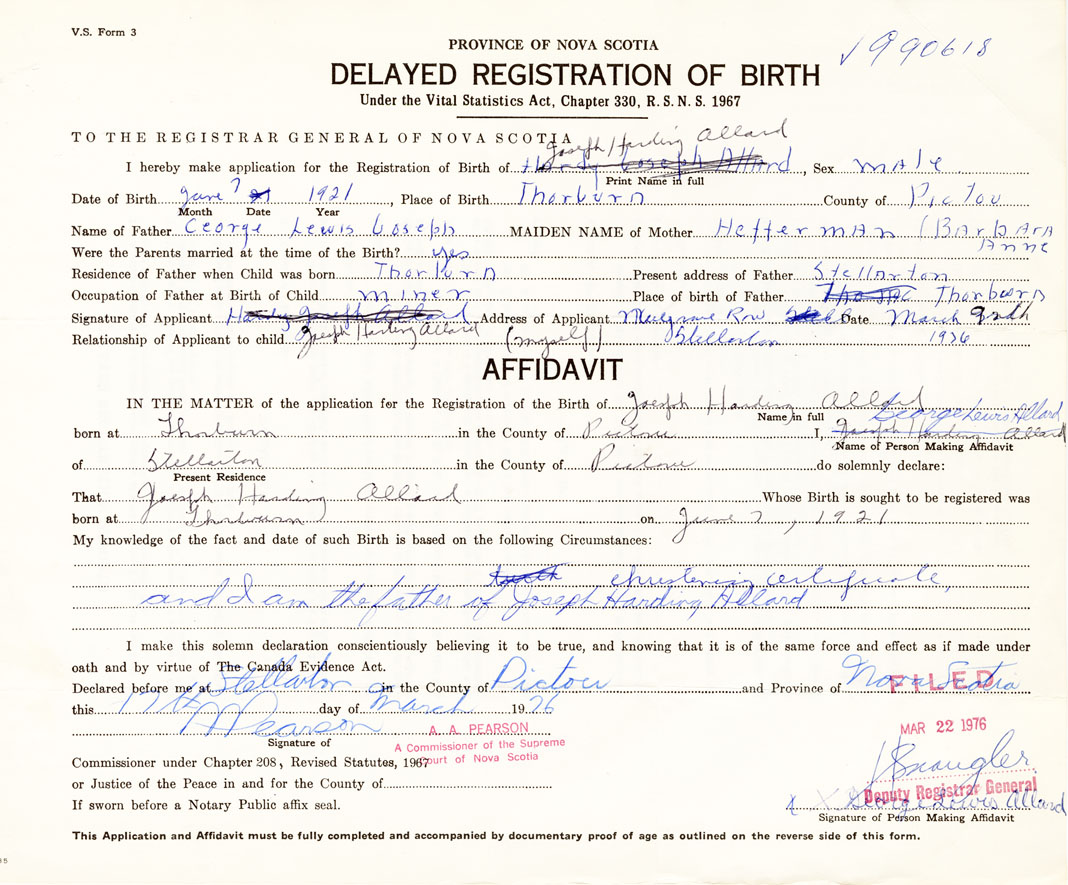 V.S. Form 3
PROVINCE OF NOVA SCOTIA
990618
DELAYED REGISTRATION OF BIRTH
Under the Vital Statistics Act, Chapter 330, R. S. N. S. 1967
TO THE REGISTRAR GENERAL OF NOVA SCOTIA
Joseph Harding Allard
I hereby make application for the Registration of Birth of Joseph Allard, Sex male
Print Name in full
Date of Birth June 7 1921, Place of Birth Thorburn County of Pictou
Month Date Year
Name of Father George Lewis Joseph MAIDEN NAME of Mother Heffernan (Barbara
Anne
Were the Parents married at the time of the Birth? yes
Residence of Father when Child was born Thorburn Present address of Father Stellarton
Occupation of Father at Birth of Child miner Place of birth of Father Thorburn
Signature of Applicant Joseph Allard Address of Applicant Musgrave Row Date March
Relationship of Applicant to child Joseph Harding Allard (myself) Stellarton 1976
AFFIDAVIT
IN THE MATTER of the application for the Registration of the Birth of Joesph Harding Allard
Name in full George Lewis Allard
born at Thorburn in the County of Pictou I, Joesph Harding Allard
Name of Person Making Affidavit
of Stellarton in the County of Pictou do solemnly declare:
Present Residence
That Joesph Harding Allard Whose Birth is sought to be registered was
born at Thorburn on June 7, 1921
My knowledge of the fact and date of such Birth is based on the following Circumstances:
christening certificate,
and I am the father of Joseph Harding Allard
I make this solemn declaration conscientiously believing it to be true, and knowing that it is of the same force and effect as if made under
oath and by virtue of The Canada Evidence Act.
Declared before me at Stellarton in the County of Pictou and Province of Nova Scotia
FILED
this 17th day of March 1976
A A Pearson
A. A. PEARSON
MAR 22 1976
Signature of
A Commissioner of the Supreme
Court of Nova Scotia
Commissioner under Chapter 208, Revised Statutes, 1967
or Justice of the Peace in and for the County of
Deputy Registrar General
If sworn before a Notary Public affix seal.
X X George Lewis Allard
Signature of Person Making Affidavit
This Application and Affidavit must be fully completed and accompanied by documentary proof of age as outlined on the reverse side of this form.